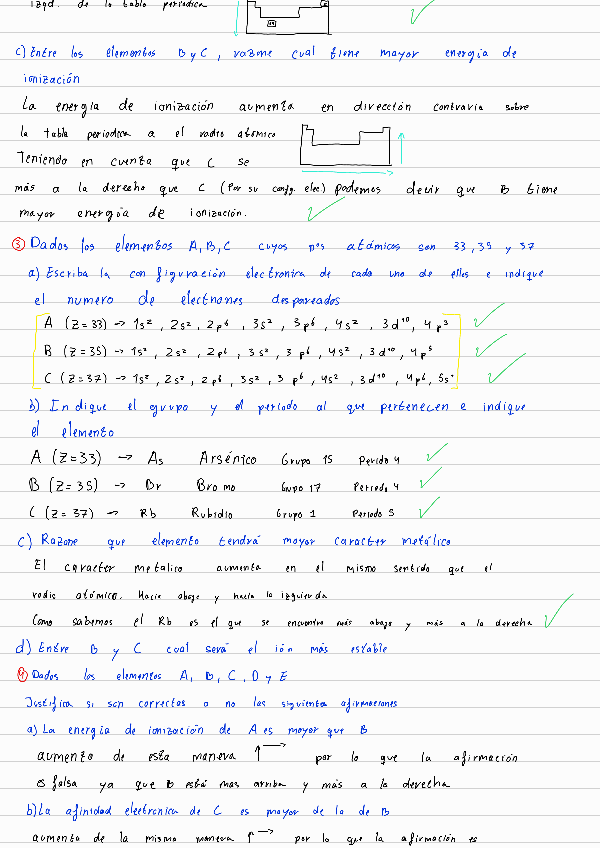 izqd. de la tabla periodica
c) Entre los elementos B y C, razone cual tiene mayor energía de
ionización
La energía de ionización aumenta en dirección contraria sobre
la tabla periodica a el radio atómico
Teniendo en cuenta que C se
más a la derecha que C (Por su config. elec) podemos decir que B tiene
mayor energía de ionización.
③ Dados los elementos A, B, C cuyos nos atómicos son 33, 35 y 37
a) Escriba la configuración electronica de cada uno de ellos e indique
el numero de electrones despareados
A (Z=33) -> 1s², 2s², 2p⁶, 3s², 3p⁶, 4s², 3d¹⁰, 4p³
B (Z=35) -> 1s², 2s², 2p⁶, 3s², 3p⁶, 4s², 3d¹⁰, 4p⁵
C (Z=37) -> 1s², 2s², 2p⁶, 3s², 3p⁶, 4s², 3d¹⁰, 4p⁶, 5s¹
b) Indique el grupo y el periodo al que pertenecen e indique
el elemento
A (Z=33) -> As Arsénico Grupo 15 Periodo 4
B (Z=35) -> Br Bromo Grupo 17 Periodo 4
C (Z=37) -> Rb Rubidio Grupo 1 Periodo 5
c) Razone que elemento tendrá mayor caracter metálico
El caracter metalico aumenta en el mismo sentido que el
radio atómico. Hacia abajo y hacia la izquierda
Como sabemos el Rb es el que se encuentra más abajo y más a la derecha
d) Entre B y C cual será el ión más estable
④ Dados los elementos A, B, C, D y E
Justifica si son correctas o no las siguientes afirmaciones
a) La energia de ionización de A es mayor que B
aumenta de esta manera ↑→ por lo que la afirmación
es falsa ya que B está mas arriba y más a la derecha
b) La afinidad electronica de C es mayor de la de B
aumenta de la misma manera ↑→ por lo que la afirmación es